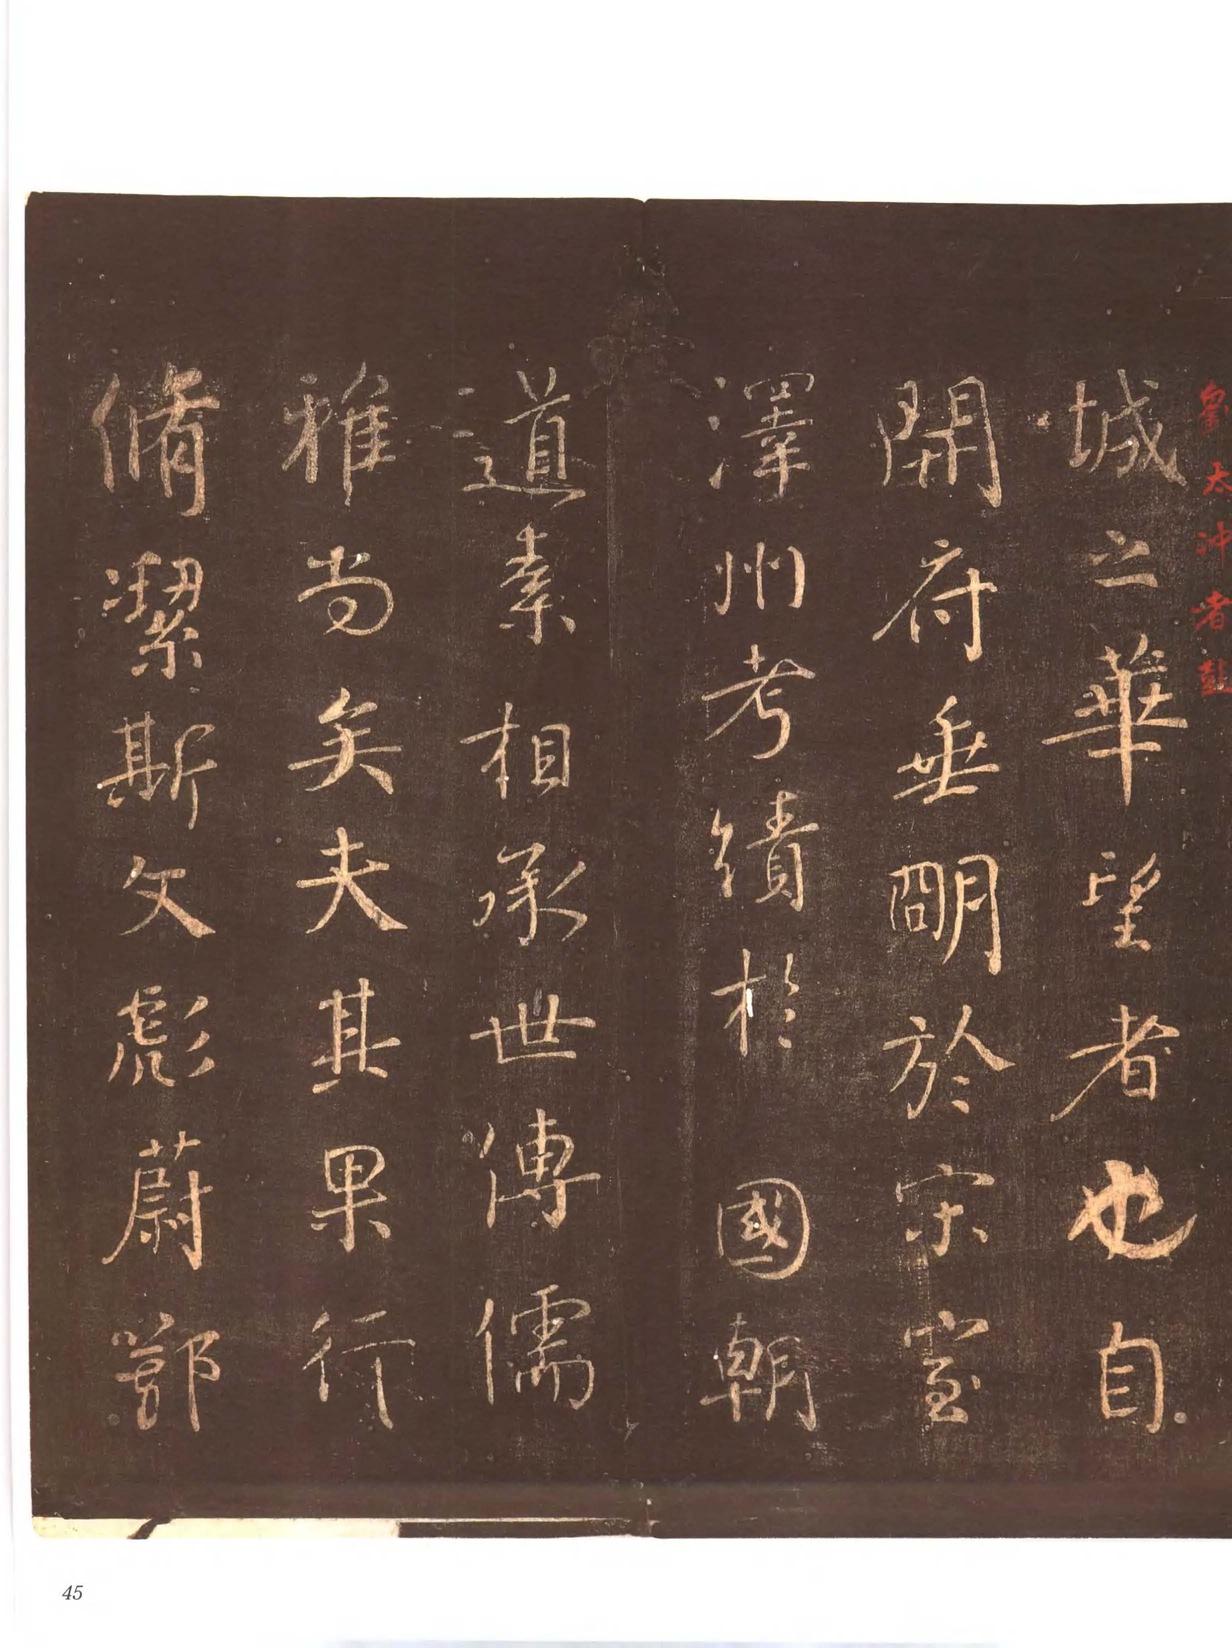 劉太沖者彭
城之華望者也自
開府垂明於宋室
澤州考績於國朝
道素相承世傳儒
雅尚矣夫其果行
脩潔斯文彪蔚鄂
45